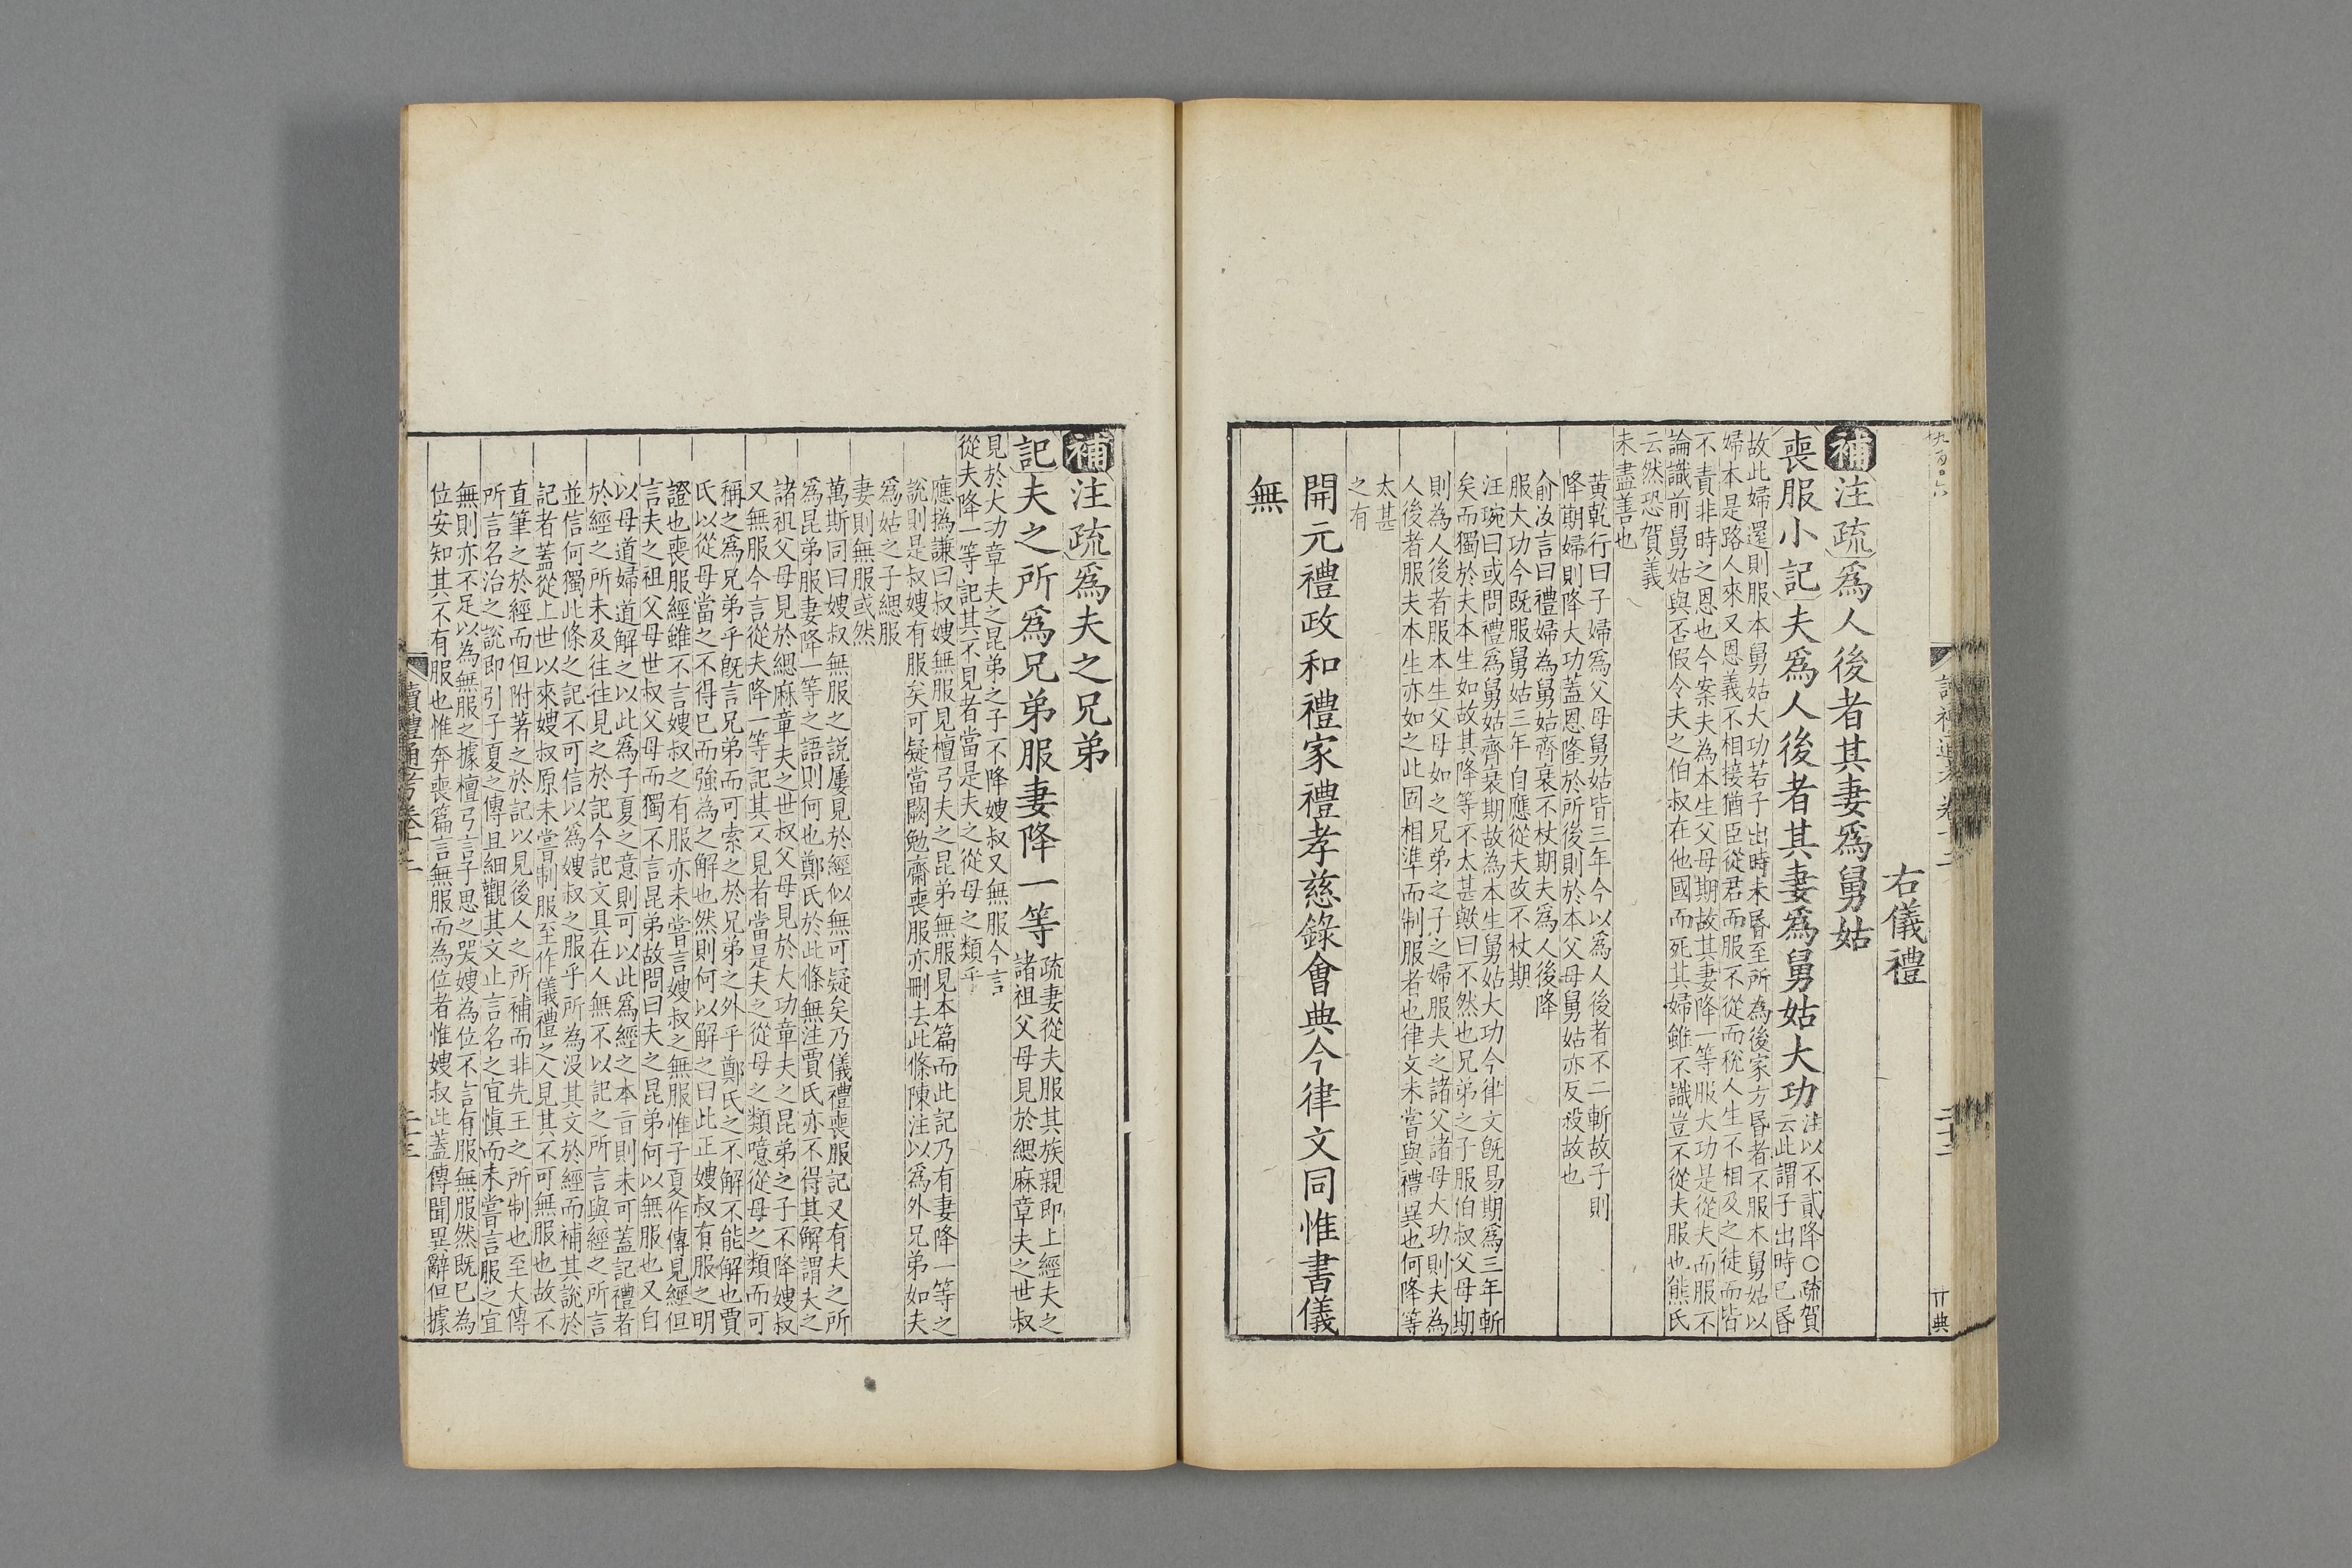 右儀禮
補注疏爲人後者其妻爲舅姑
喪服小記夫爲人後者其妻爲舅姑大功
注以不貳降○疏賀
云此謂子出時已昏
故此婦還則服本舅姑大功若子出時未昏至所為後家方昏者不服本舅姑以
婦本是路人來又恩義不相接猶臣從君而服不從而稅人生不相及之徒而皆
不責非時之恩也今案夫為本生父母期故其妻降一等服大功是從夫而服不
論識前舅姑與否假令夫之伯叔在他國而死其婦雖不識豈不從夫服也熊氏
云然恐賀義
未盡善也
黃乾行曰子婦爲父母舅姑皆三年今以爲人後者不二斬故子則
降期婦則降大功蓋恩隆於所後則於本父母舅姑亦反殺故也
俞汝言曰禮婦為舅姑齊衰不杖期夫爲人後降
服大功今既服舅姑三年自應從夫改不杖期
汪琬曰或問禮爲舅姑齊衰期故為本生舅姑大功今律文既易期爲三年斬
矣而獨於夫本生如故其降等不太甚歟曰不然也兄弟之子服伯叔父母期
則為人後者服本生父母如之兄弟之子之婦服夫之諸父諸母大功則夫為
人後者服夫本生亦如之此固相準而制服者也律文未嘗與禮異也何降等
太甚
之有
開元禮政和禮家禮孝慈錄會典今律文同惟書儀
無
補注疏爲夫之兄弟
記夫之所爲兄弟服妻降一等
疏妻從夫服其族親即上經夫之
諸祖父母見於緦麻章夫之世叔
見於大功章夫之昆弟之子不降嫂叔又無服今言
從夫降一等記其不見者當是夫之從母之類乎
應撝謙曰叔嫂無服見檀弓夫之昆弟無服見本篇而此記乃有妻降一等之
說則是叔嫂有服矣可疑當闕勉齋喪服亦刪去此條陳注以爲外兄弟如夫
爲姑之子緦服
妻則無服或然
萬斯同曰嫂叔無服之說屢見於經似無可疑矣乃儀禮喪服記又有夫之所
爲昆弟服妻降一等之語則何也鄭氏於此條無注賈氏亦不得其解謂夫之
諸祖父母見於緦麻章夫之世叔父母見於大功章夫之昆弟之子不降嫂叔
又無服今言從夫降一等記其不見者當是夫之從母之類噫從母之類而可
稱之爲兄弟乎既言兄弟而可索之於兄弟之外乎鄭氏之不解不能解也賈
氏以從母當之不得已而強為之解也然則何以解之曰此正嫂叔有服之明
證也喪服經雖不言嫂叔之有服亦未嘗言嫂叔之無服惟子夏作傳見經但
言夫之祖父母世叔父母而獨不言昆弟故問曰夫之昆弟何以無服也又自
以母道婦道解之以此爲子夏之意則可以此爲經之本旨則未可蓋記禮者
於經之所未及往往見之於記今記文具在人無不以記之所言與經之所言
並信何獨此條之記不可信以爲嫂叔之服乎所為没其文於經而補其說於
記者蓋從上世以來嫂叔原未嘗制服至作儀禮之人見其不可無服也故不
直筆之於經而但附著之於記以見後人之所補而非先王之所制也至大傳
所言名治之說即引子夏之傳且細觀其文止言名之宜慎而未嘗言服之宜
無則亦不足以為無服之據檀弓言子思之哭嫂為位不言有服無服然既已為
位安知其不有服也惟奔喪篇言無服而為位者惟嫂叔此蓋傳聞異辭但據
讀禮通考卷十二
二十三